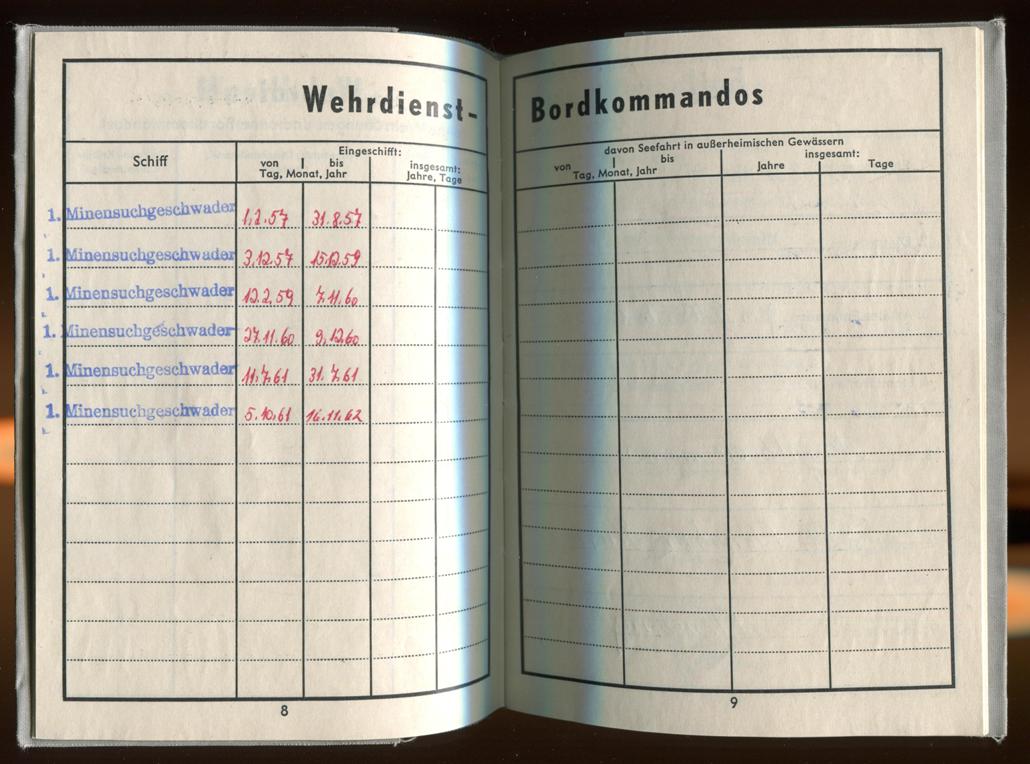 Wehrdienst-
Schiff
Eingeschifft:
von | bis
Tag, Monat, Jahr
insgesamt:
Jahre, Tage
1. Minensuchgeschwader 1.2.57 31.8.57
1. Minensuchgeschwader 3.12.57 15.12.59
1. Minensuchgeschwader 12.2.59 7.11.60
1. Minensuchgeschwader 27.11.60 9.12.60
1. Minensuchgeschwader 11.7.61 31.7.61
1. Minensuchgeschwader 5.10.61 16.11.62
8
Bordkommandos
davon Seefahrt in außerheimischen Gewässern
von | bis
Tag, Monat, Jahr
insgesamt:
Jahre Tage
9